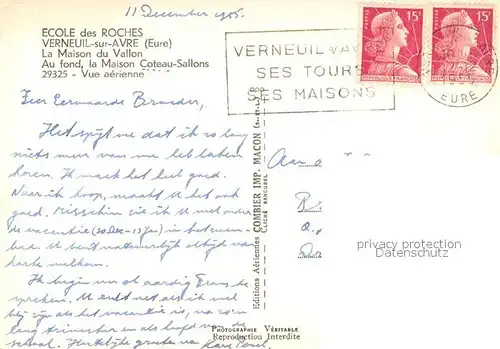 11 December 1955.
ECOLE des ROCHES
VERNEUIL-sur-AVRE (Eure)
La Maison du Vallon
Au fond, la Maison Coteau-Sallons
29325 - Vue aérienne
VERNEUIL
SES TOURS
SES MAISONS
15F
15F
EURE
Zeer Eerwaarde Broeder,
Het spijt me dat ik zo lang
niets meer van me heb laten
horen. Ik maak het heel goed.
Naar ik hoop, maakt U het ook
goed. Misschien zie ik U wel onder
de vacantie (20 Dec - 13 Jan) in
U bent natuurlijk altijd van
harte welkom.
Ik begin nu al aardig Frans te
spreken. U zult net als ik wel
blij zijn als het vacantie is, na zo'n
lang trimester en als hoofd van de
school. Hartelijke groeten van
Editions Aériennes COMBIER IMP. MACON (S.-et-L.)
CLICHÉ RANCUREL
PHOTOGRAPHIE VÉRITABLE
Reproduction Interdite
privacy protection
Datenschutz